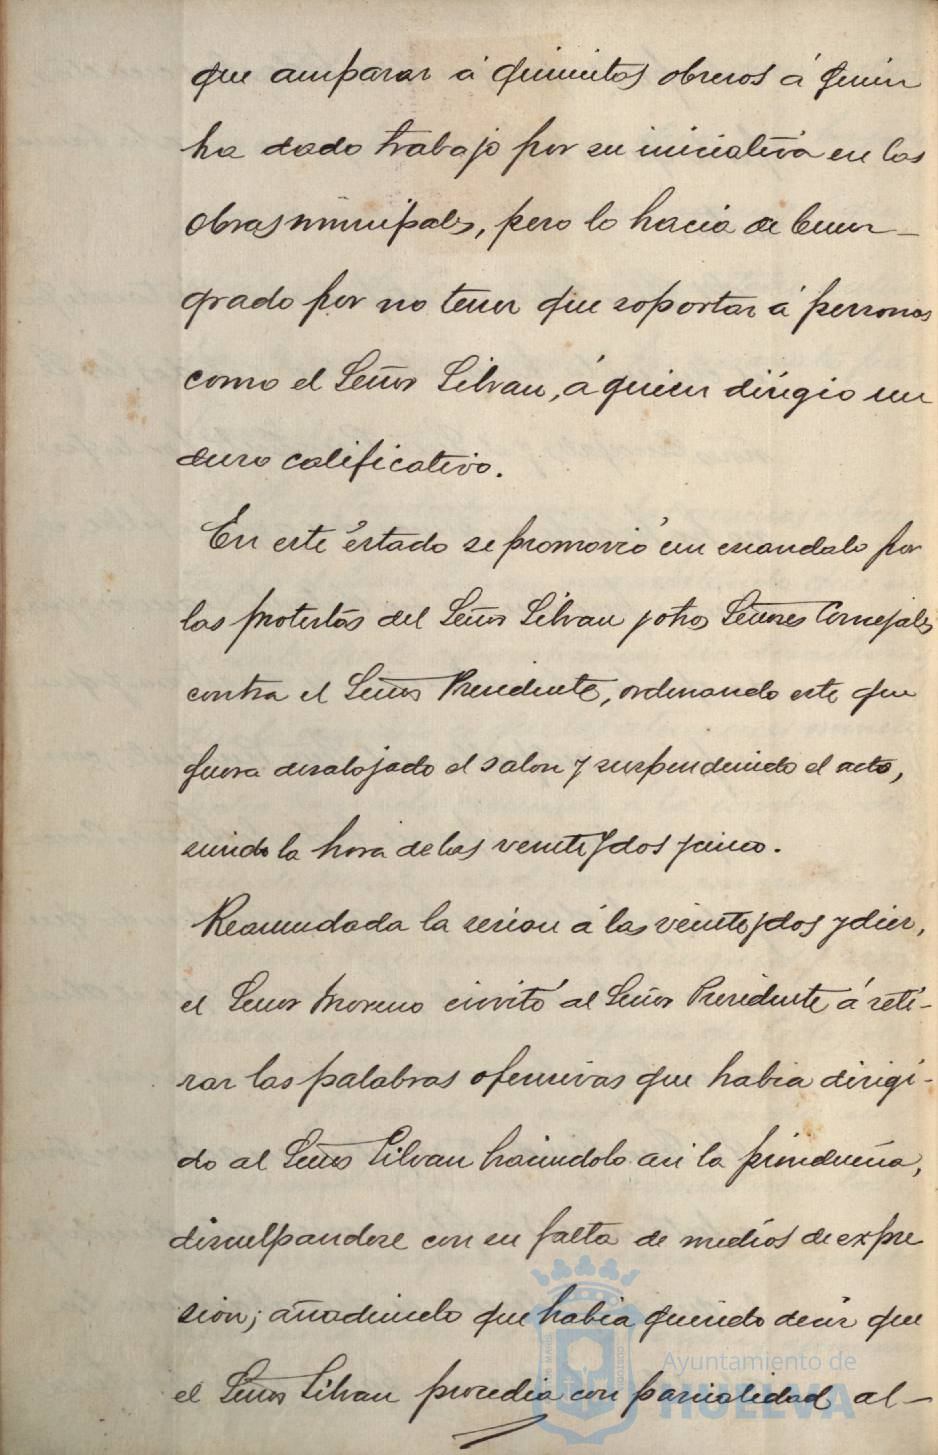 que amparar á quinientos obreros á quien
ha dado trabajo por su iniciativa en las
obras municipales, pero lo hacia de buen
grado por no tener que soportar á personas
como el Señor Silvan, á quien dirigio un
duro calificativo.
En este estado se promovió un escandalo por
las protestas del Señor Silvan y otros Señores Concejales
contra el Señor Presidente, ordenando este que
fuera desalojado el salon y suspendiendo el acto,
siendo la hora de las veinte y dos y cinco.
Reanudada la sesion á las veinte y dos y diez,
el Señor Moreno invitó al Señor Presidente á reti-
rar las palabras ofensivas que habia dirigi-
do al Señor Silvan haciendolo asi la presidencia,
disculpandose con su falta de medios de expre
sion; añadiendo que habia querido decir que
el Señor Silvan procedia con parcialidad al-
Ayuntamiento de
HUELVA